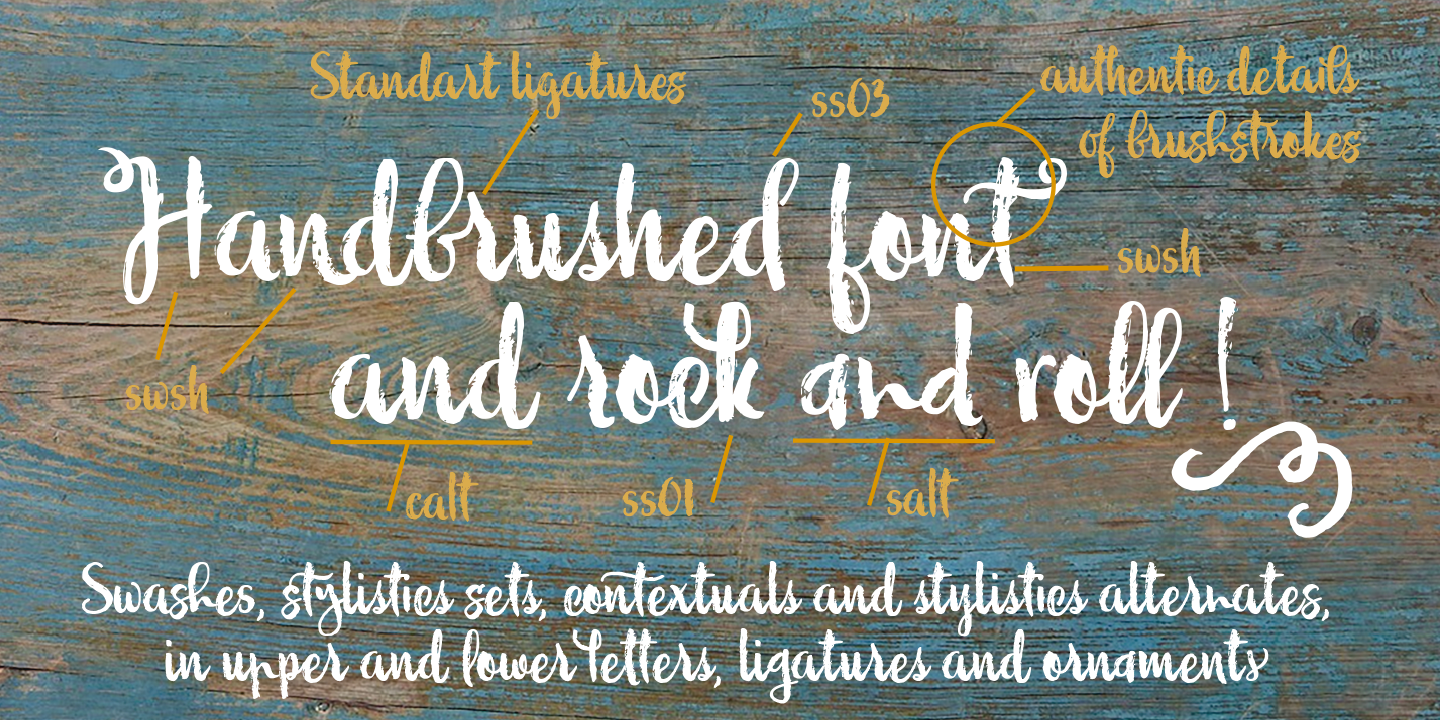 Standart ligatures
ss03
authentic details
of brushstrokes
Handbrushed font
swsh
and rock and roll!
swsh
calt
ss01
salt
Swashes, stylistics sets, contextuals and stylistics alternates,
in upper and lower letters, ligatures and ornaments